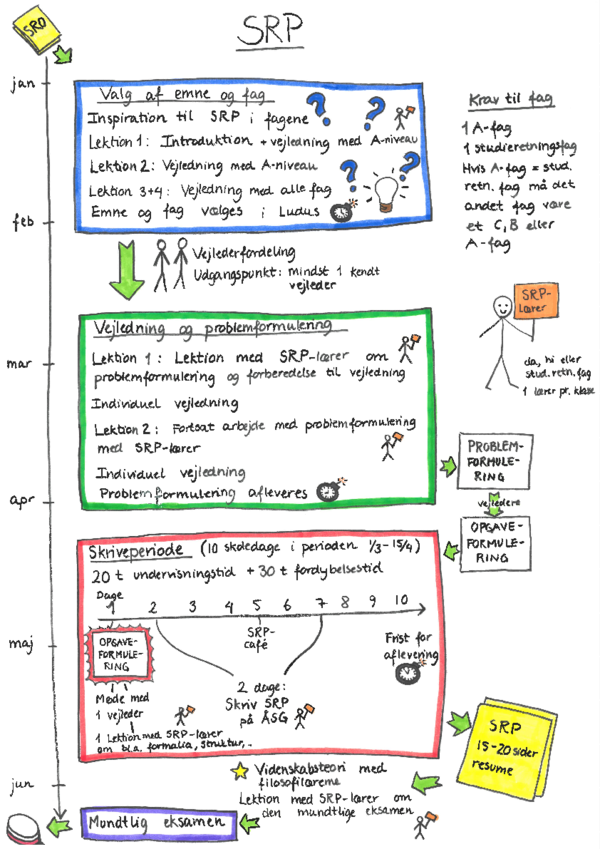 SRO
SRP
jan
Valg af emne og fag
Inspiration til SRP i fagene
Lektion 1: Introduktion + vejledning med A-niveau
Lektion 2: Vejledning med A-niveau
Lektion 3+4: Vejledning med alle fag
Emne og fag vælges i Ludus
Krav til fag
1 A-fag
1 studieretningsfag
Hvis A-fag = stud.
retn. fag må det
andet fag være
et C, B eller
A-fag
feb
Vejlederfordeling
Udgangspunkt: mindst 1 kendt
vejleder
SRP-
lærer
da, hi eller
stud.retn.fag
1 lærer pr. klasse
Vejledning og problemformulering
mar
Lektion 1: Lektion med SRP-lærer om
problemformulering og forberedelse til vejledning
Individuel vejledning
Lektion 2: Fortsat arbejde med problemformulering
med SRP-lærer
Individuel vejledning
Problemformulering afleveres
apr
PROBLEM-
FORMULE-
RING
vejledere
OPGAVE-
FORMULE-
RING
Skriveperiode (10 skoledage i perioden 1/3-15/4)
20 t undervisningstid + 30 t fordybelsestid
Dage
1 2 3 4 5 6 7 8 9 10
SRP-
café
Frist for
aflevering
maj
OPGAVE-
FORMULE-
RING
Møde med
1 vejleder
1 Lektion med SRP-lærer
om bl.a. formalia, struktur,..
2 dage:
Skriv SRP
på ÅSG
SRP
15-20 sider
resume
jun
Videnskabsteori med
filosofilærerne
Lektion med SRP-lærer om
den mundtlige eksamen
Mundtlig eksamen